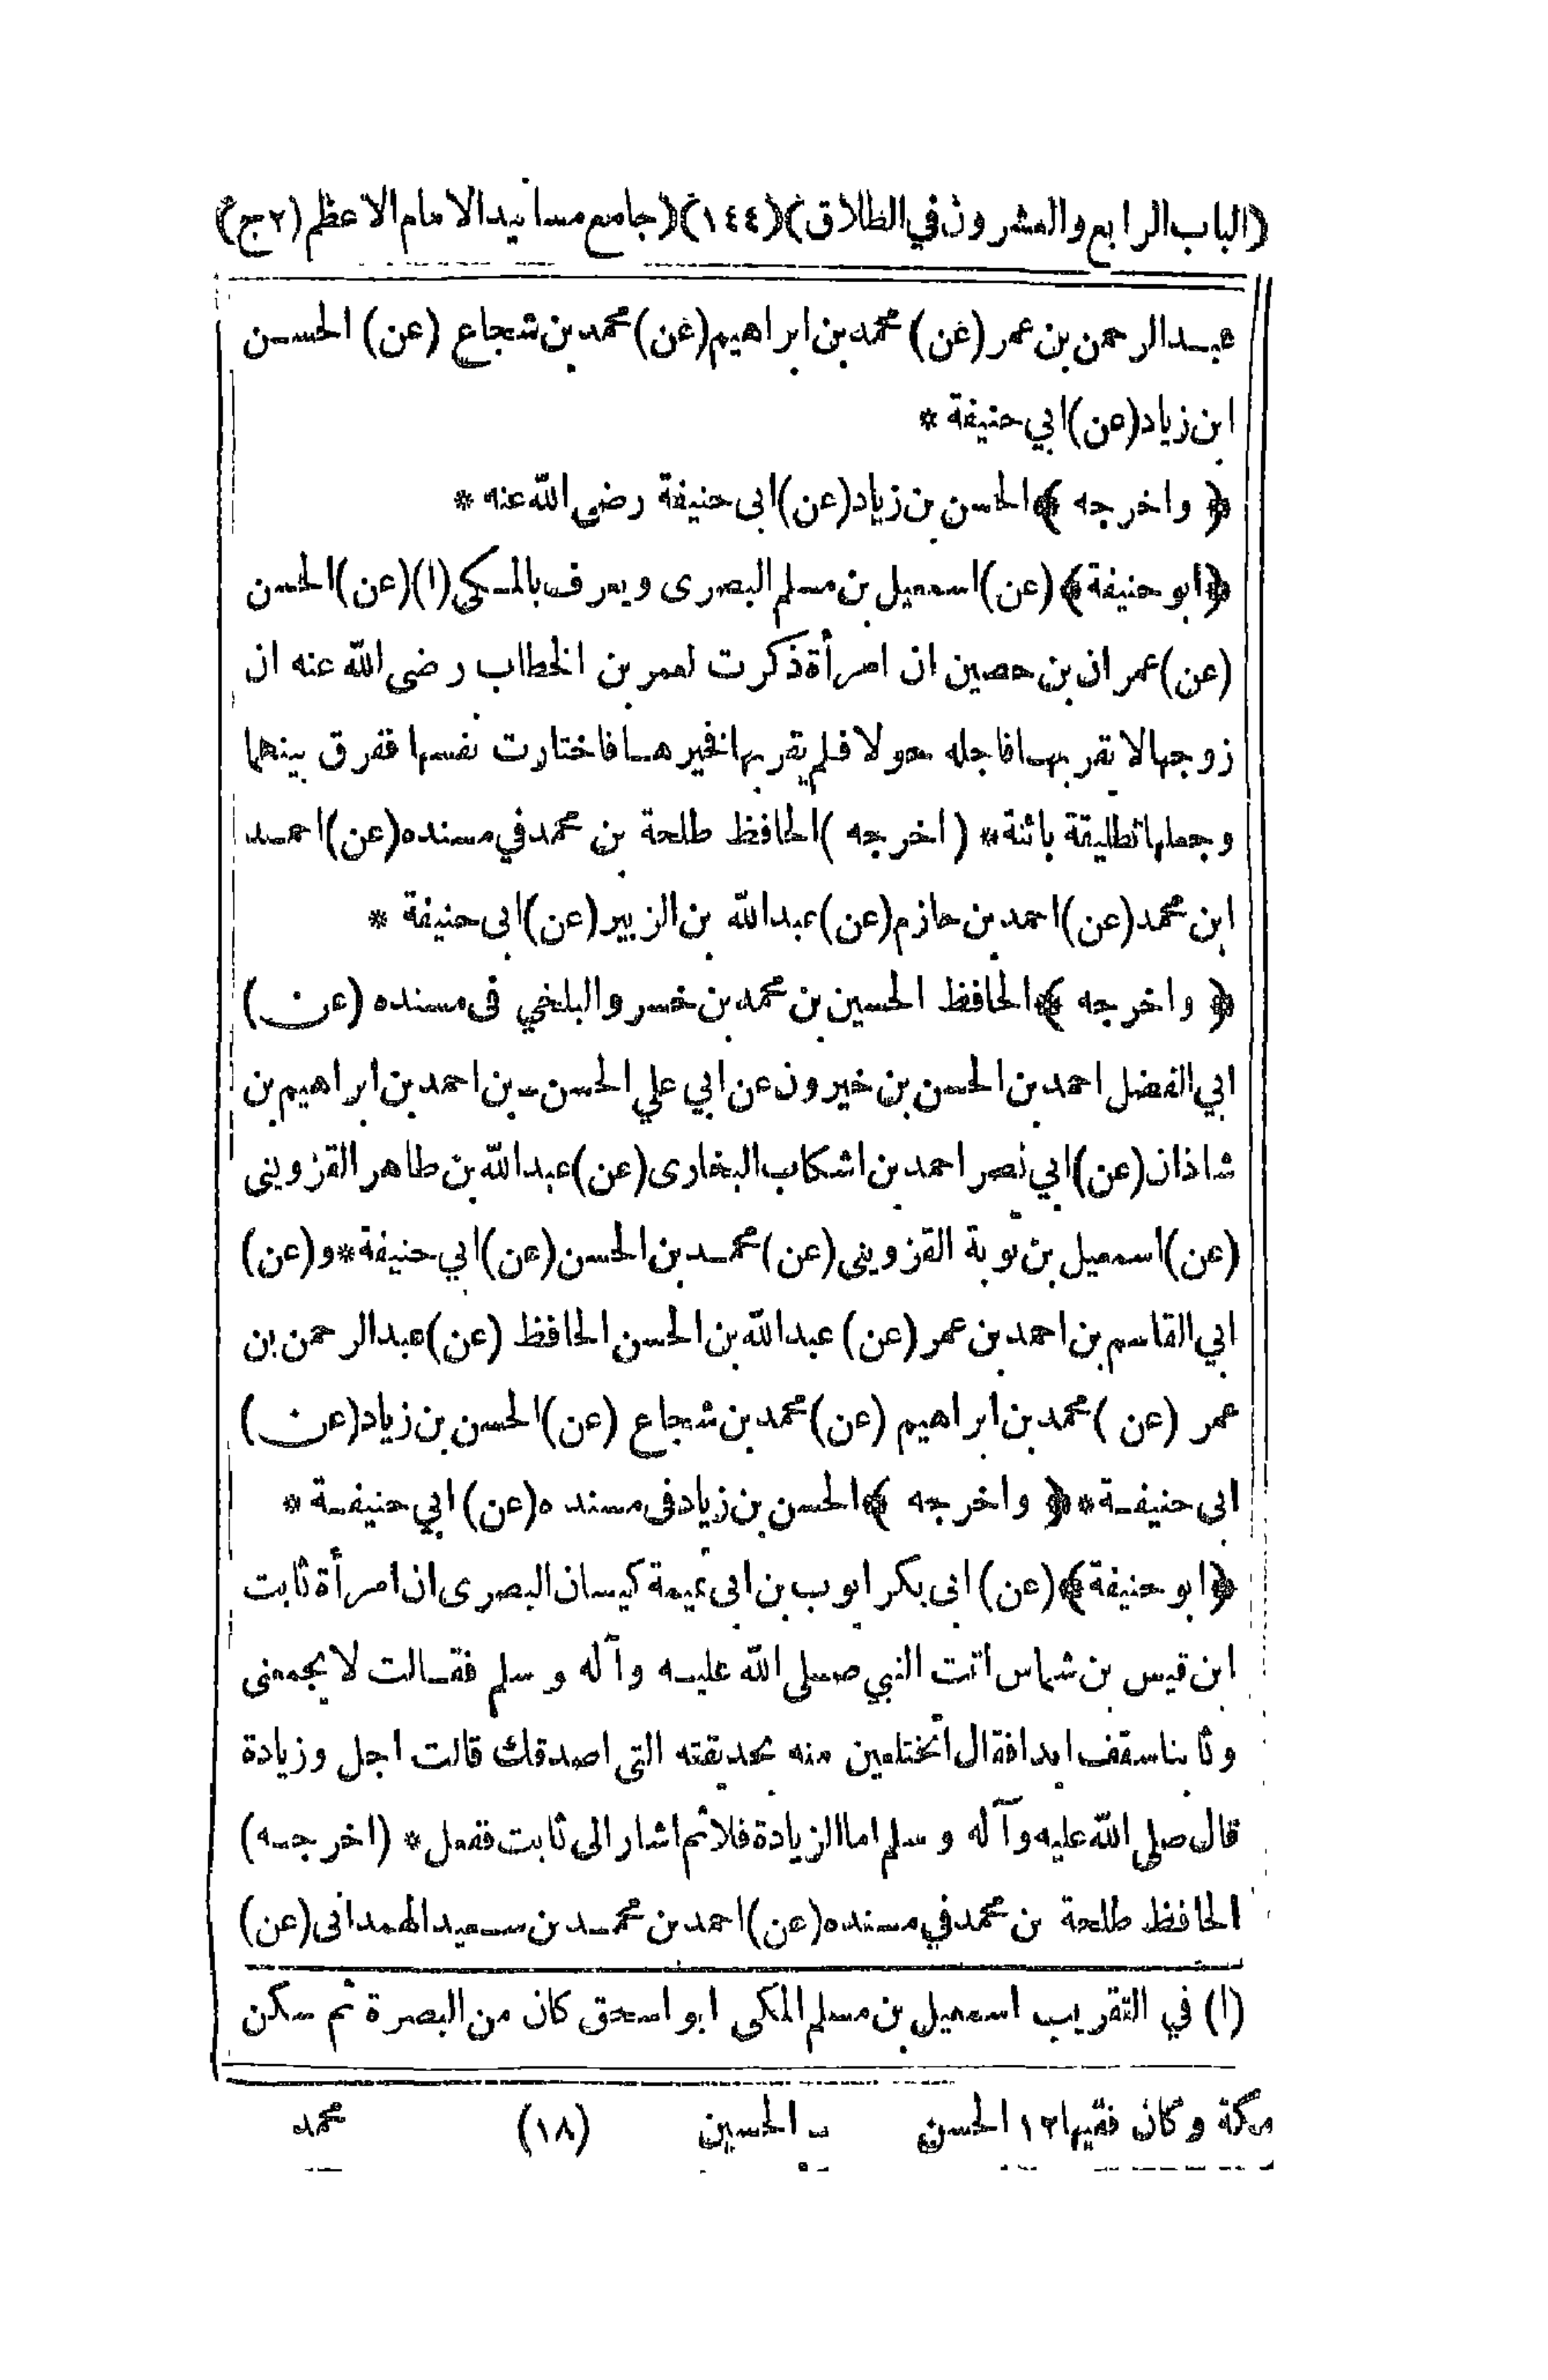 (الباب الرابع والعشرون في الطلاق)(١٤٤)(جامع مسانيد الامام الاعظم (ج٢)
عبد الرحمن بن عمر (عن) محمد بن ابراهيم (عن) محمد بن شجاع (عن) الحسن
ابن زياد (عن) ابي حنيفة *
﴿ واخرجه ﴾ الحسن بن زياد (عن) ابى حنيفة رضى الله عنه *
﴿ابو حنيفة﴾ (عن) اسمعيل بن مسلم البصرى ويعرف بالمكى (١) (عن) الحسن
(عن) عمران بن حصين ان امرأة ذكرت لعمر بن الخطاب رضى الله عنه ان
زوجها لا يقربها فاجله حولا فلم يقربها فخيرها فاختارت نفسها ففرق بينهما
وجعلها تطليقة بائنة * (اخرجه) الحافظ طلحة بن محمد في مسنده (عن) احمد
ابن محمد (عن) احمد بن حازم (عن) عبد الله بن الزبير (عن) ابى حنيفة *
﴿ واخرجه ﴾ الحافظ الحسين بن محمد بن خسرو البلخي فى مسنده (عن)
ابي الفضل احمد بن الحسن بن خيرون عن ابي علي الحسن بن احمد بن ابراهيم بن
شاذان (عن) ابي نصر احمد بن اشكاب البخارى (عن) عبد الله بن طاهر القزوينى
(عن) اسمعيل بن توبة القزوينى (عن) محمد بن الحسن (عن) ابي حنيفة * و (عن)
ابي القاسم بن احمد بن عمر (عن) عبد الله بن الحسن الحافظ (عن) عبد الرحمن بن
عمر (عن) محمد بن ابراهيم (عن) محمد بن شجاع (عن) الحسن بن زياد (عن)
ابى حنيفة * ﴿ واخرجه ﴾ الحسن بن زياد فى مسنده (عن) ابي حنيفة *
﴿ابو حنيفة﴾ (عن) ابى بكر ايوب بن ابى تميمة كيسان البصرى ان امرأة ثابت
ابن قيس بن شماس اتت النبي صلى الله عليه وآله وسلم فقالت لا يجمعنى
وثابتا سقف ابدا فقال أتختلعين منه بحديقته التى اصدقك قالت اجل وزيادة
قال صلى الله عليه وآله وسلم اما الزيادة فلا ثم اشار الى ثابت ففعل * (اخرجه)
الحافظ طلحة بن محمد في مسنده (عن) احمد بن محمد بن سعيد الهمدانى (عن)
(١) في التقريب اسمعيل بن مسلم المكى ابو اسحق كان من البصرة ثم سكن
مكة وكان فقيها ١٢ الحسن ـ الحسين (١٨) محمد